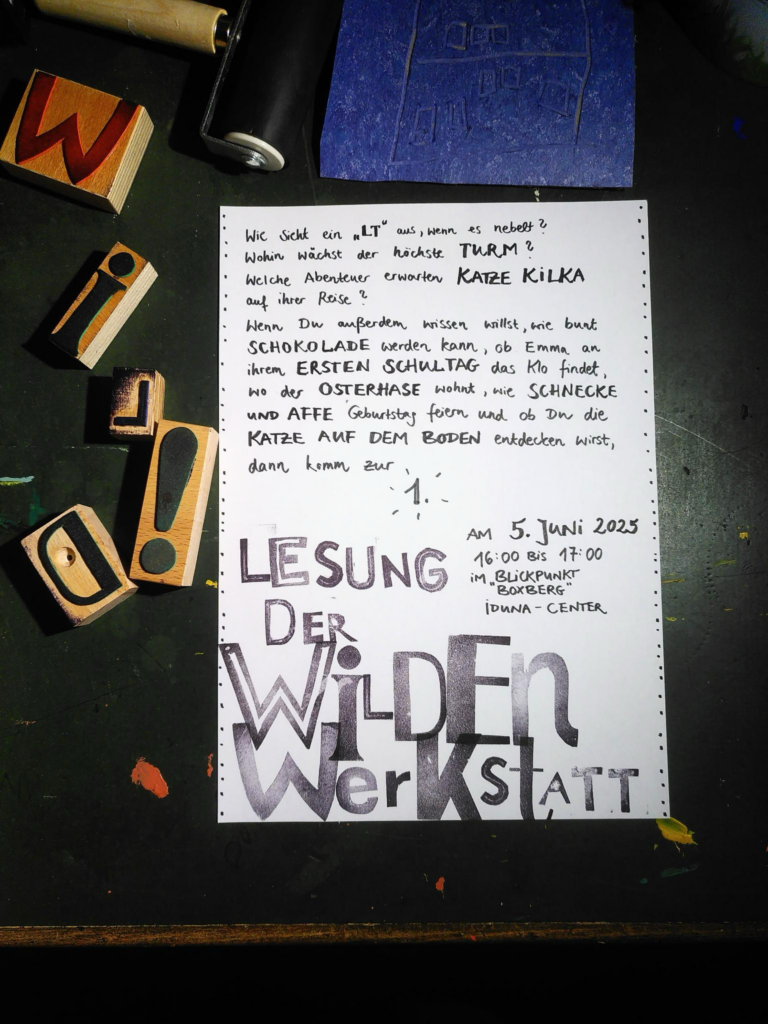 W
i
L
!
D
Wie sieht ein „LT“ aus, wenn es nebelt?
Wohin wächst der höchste TURM?
Welche Abenteuer erwarten KATZE KiLKA
auf ihrer Reise?
Wenn Du außerdem wissen willst, wie bunt
SCHOKOLADE werden kann, ob Emma an
ihrem ERSTEN SCHULTAG das Klo findet,
wo der OSTERHASE wohnt, wie SCHNECKE
UND AFFE Geburtstag feiern und ob Du die
KATZE AUF DEM BODEN entdecken wirst,
dann komm zur
1.
LESUNG
DER
WiLDEn
WerKstATT
AM 5. JUNi 2025
16:00 BiS 17:00
iM "BLiCKPUNKT
BOXBERG"
iDUNA-CENTER